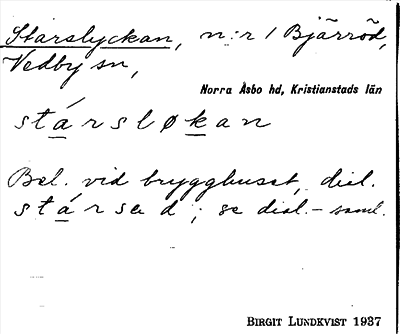 Starslyckan, n:r 1 Bjärröd,
Vedby sn,
Norra Åsbo hd, Kristianstads län
stársløkan
Bel. vid brygghuset, dial.
stársad; se dial.-saml.
BIRGIT LUNDKVIST 1937